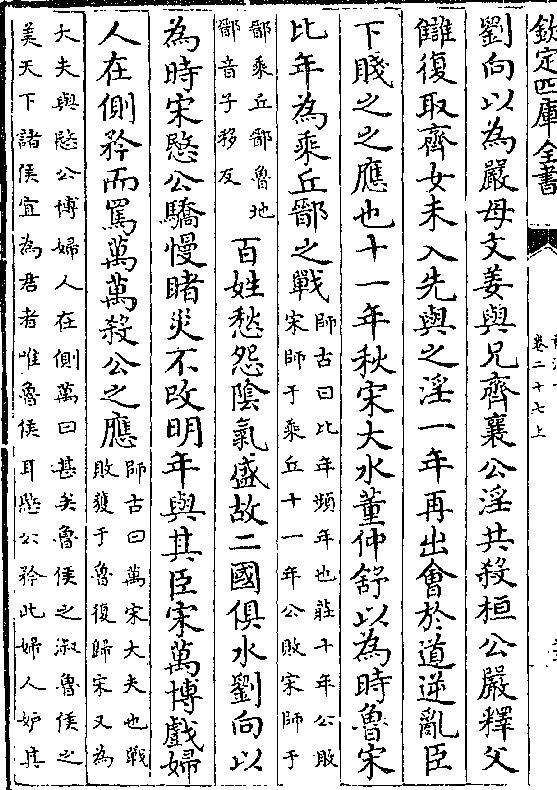 欽定四庫全書
卷二十七上
劉向以為嚴母文姜與兄齊襄公淫共殺桓公嚴釋父
讎復取齊女未入先與之淫一年再出會於道逆亂臣
下賤之之應也十一年秋宋大水董仲舒以為時魯宋
比年為乘丘鄑之戰
師古曰比年頻年也莊十年公敗
宋師于乘丘十一年公敗宋師于
鄑乘丘鄑魯地
鄑音子移反
百姓愁怨陰氣盛故二國俱水劉向以
為時宋愍公驕慢睹災不改明年與其臣宋萬博戲婦
人在側矜而罵萬萬殺公之應
師古曰萬宋大夫也戰
敗獲于魯復歸宋又為
大夫與愍公博婦人在側萬曰甚矣魯侯之淑魯侯之
美天下諸侯宜為君者唯魯侯耳愍公矜此婦人妒其